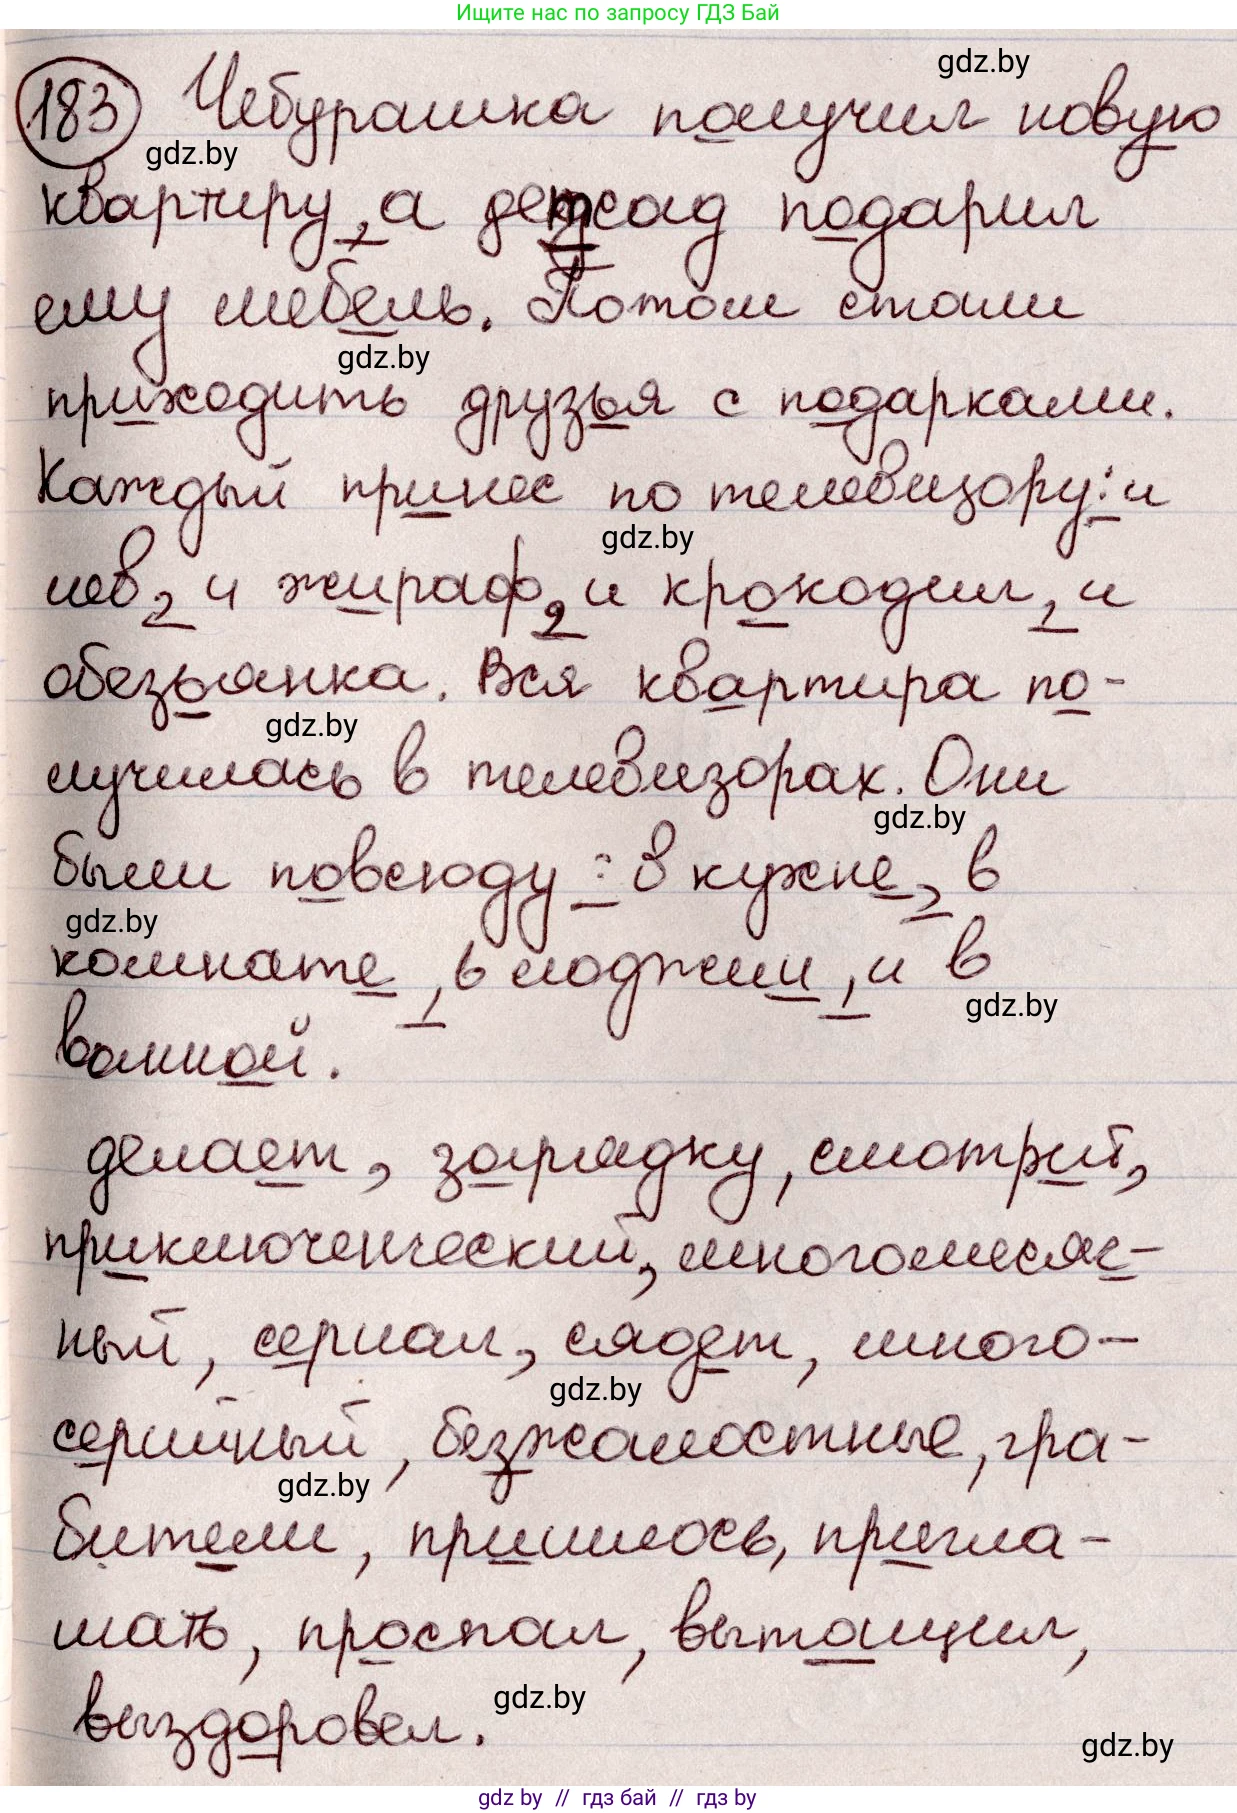 Ищите нас по запросу ГДЗ Бай
gdz.by
183 Чебурашка получил новую
gdz.by
квартиру, а детсад подарил
ему мебель. Потом стали
gdz.by
приходить друзья с подарками.
Каждый принес по телевизору: и
gdz.by
лев, и жираф, и крокодил, и
обезьянка. Вся квартира по-
gdz.by
лучилась в телевизорах. Они
gdz.by
были повсюду: в кухне, в
gdz.by
комнате, в лоджии, и в
gdz.by
ванной.
делает, зарядку, смотрит,
приключенческий, многомесяч-
ный, сериал, сядет, много-
gdz.by
серийный, безжалостные, гра-
gdz.by
бители, пришлось, пригла-
шать, проспал, вытащил,
gdz.by
выздоровел.
gdz.by
gdz.by // гдз бай // гдз by